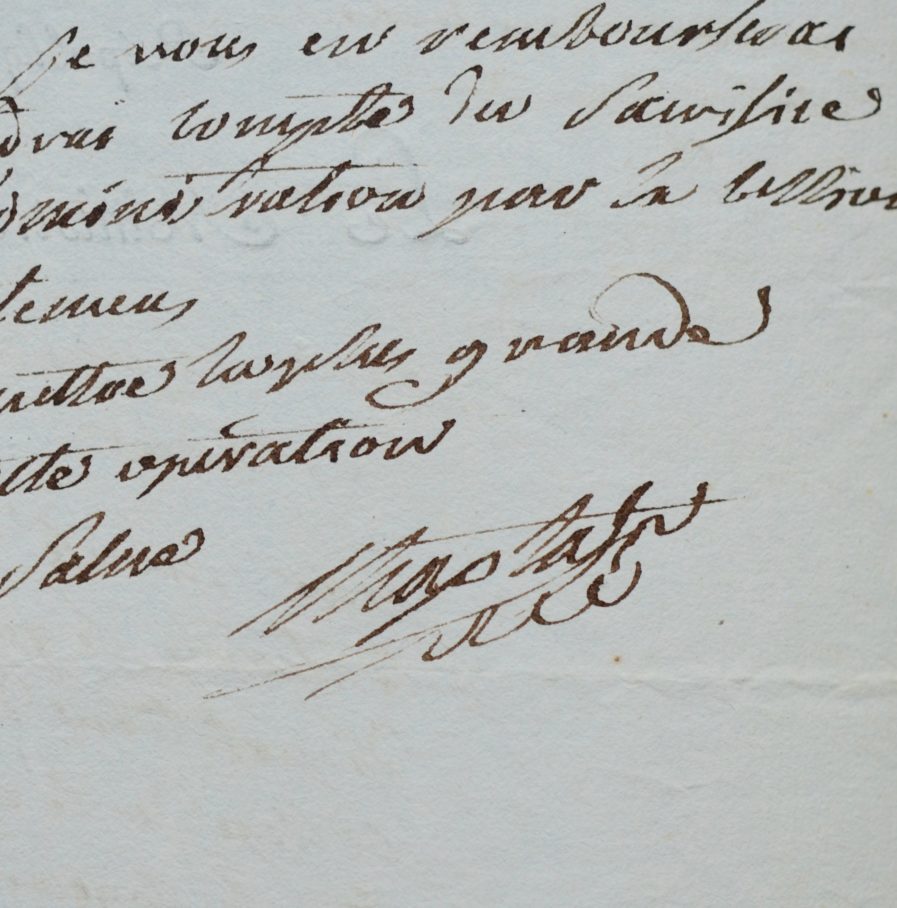 Je vous en rembourserai
drai compte du sacrifice
ministration par la
temens
mettre la plus grande
tte opération
Salue